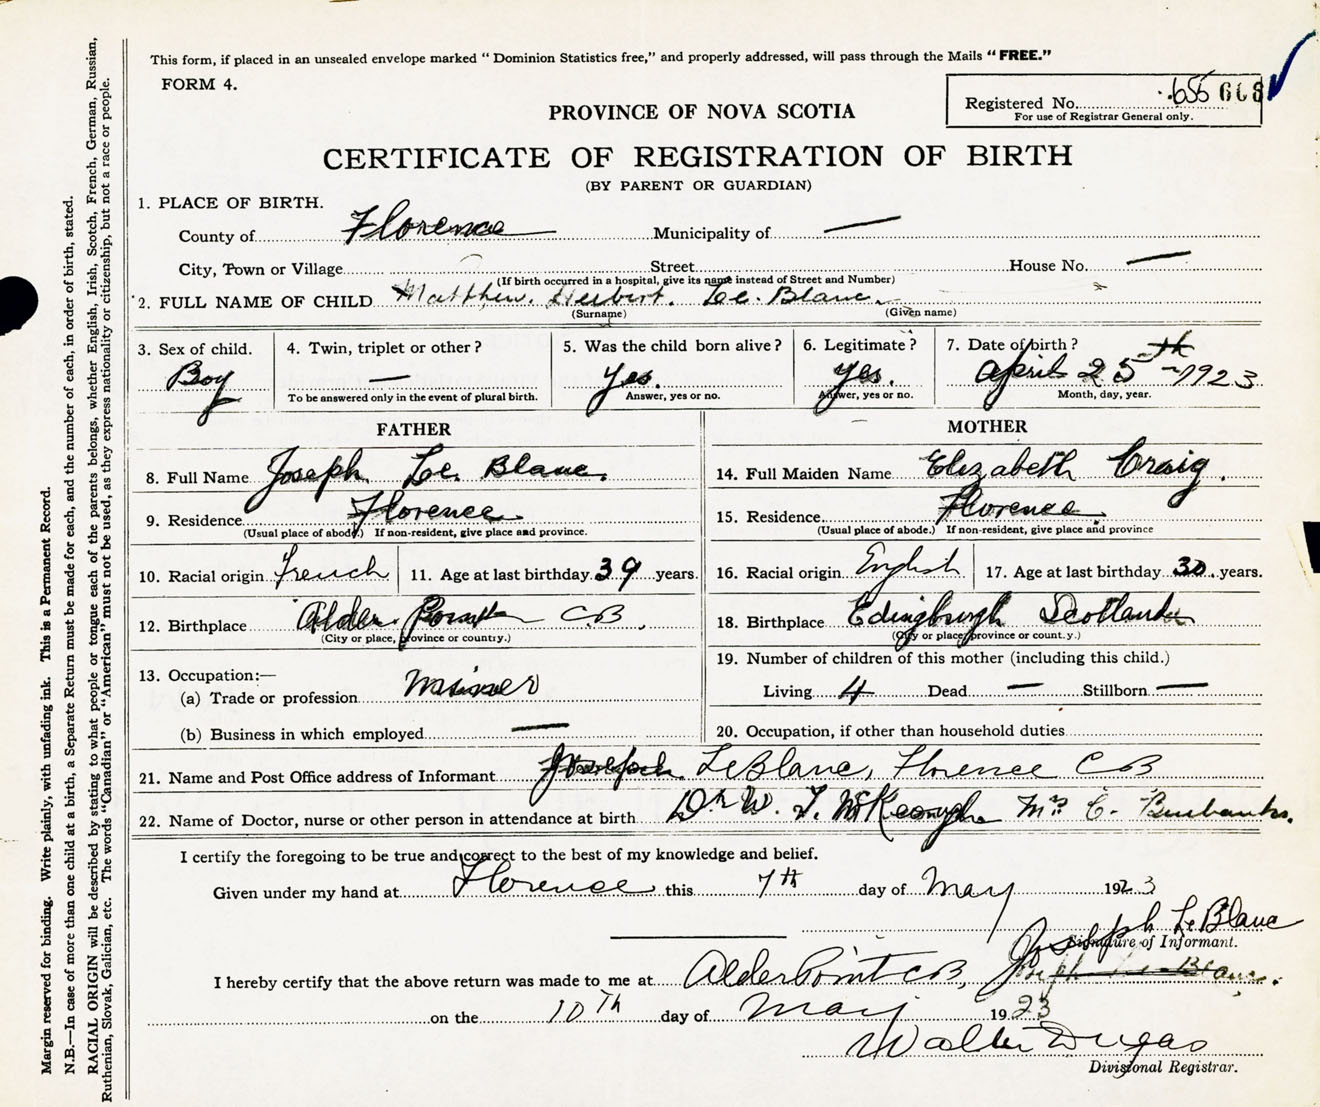 This form, if placed in an unsealed envelope marked "Dominion Statistics free," and properly addressed, will pass through the Mails "FREE."
FORM 4.
Registered No. 656 668
For use of Registrar General only.
PROVINCE OF NOVA SCOTIA
CERTIFICATE OF REGISTRATION OF BIRTH
(BY PARENT OR GUARDIAN)
1. PLACE OF BIRTH.
County of Florence Municipality of —
City, Town or Village Street House No. —
(If birth occurred in a hospital, give its name instead of Street and Number)
2. FULL NAME OF CHILD Matthew. Herbert. Le. Blanc.
(Surname) (Given name)
3. Sex of child. 4. Twin, triplet or other? 5. Was the child born alive? 6. Legitimate? 7. Date of birth?
Boy — Yes. Yes. April 25th - 1923
To be answered only in the event of plural birth. Answer, yes or no. Answer, yes or no. Month, day, year.
FATHER MOTHER
8. Full Name Joseph Le. Blanc. 14. Full Maiden Name Elizabeth Craig.
9. Residence Florence 15. Residence Florence
(Usual place of abode.) If non-resident, give place and province. (Usual place of abode.) If non-resident, give place and province
10. Racial origin French 11. Age at last birthday 39 years. 16. Racial origin English 17. Age at last birthday 30 years.
12. Birthplace Alder Point CB. 18. Birthplace Edingburgh Scotland
(City or place, province or country.) (City or place, province or count.y.)
19. Number of children of this mother (including this child.)
13. Occupation:—
(a) Trade or profession miner Living 4 Dead — Stillborn —
(b) Business in which employed — 20. Occupation, if other than household duties
21. Name and Post Office address of Informant Joseph LeBlanc, Florence CB
22. Name of Doctor, nurse or other person in attendance at birth Dr W. J. McKeough Mrs C. Burbanks.
I certify the foregoing to be true and correct to the best of my knowledge and belief.
Given under my hand at Florence this 7th day of May 1923
Joseph LeBlanc
Signature of Informant.
I hereby certify that the above return was made to me at Alder Point CB, Joseph Le Blanc.
on the 10th day of May 1923
Walter Dugas
Divisional Registrar.
Margin reserved for binding. Write plainly, with unfading ink. This is a Permanent Record.
N.B.—In case of more than one child at a birth, a Separate Return must be made for each, and the number of each, in order of birth, stated.
RACIAL ORIGIN will be described by stating to what people or tongue each of the parents belongs, whether English, Irish, Scotch, French, German, Russian,
Ruthenian, Slovak, Galician, etc. The words "Canadian" or "American" must not be used, as they express nationality or citizenship, but not a race or people.